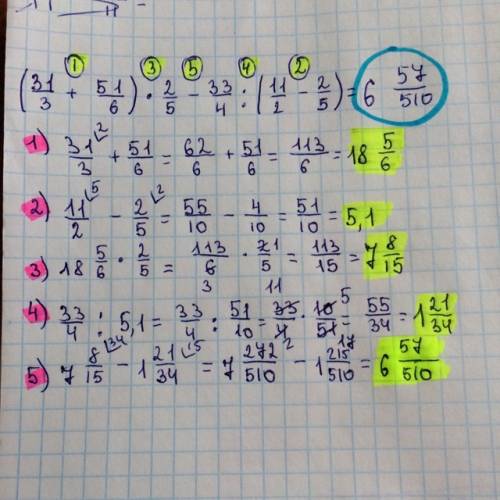 ① ③ ⑤ ④ ②
(31/3 + 51/6) · 2/5 - 33/4 : (11/2 - 2/5) = 6 57/510
1) 31/3 ² + 51/6 = 62/6 + 51/6 = 113/6 = 18 5/6
2) 11/2 ⁵ - 2/5 ² = 55/10 - 4/10 = 51/10 = 5,1
3) 18 5/6 · 2/5 = 113/6 3 · 21/5 = 113/15 = 7 8/15
4) 33/4 : 5,1 = 33/4 : 51/10 = 33 11/4 2 · 10 5/51 17 = 55/34 = 1 21/34
5) 7 8/15 ³⁴ - 1 21/34 ¹⁵ = 7 272/510 - 1 215/510 = 6 57/510